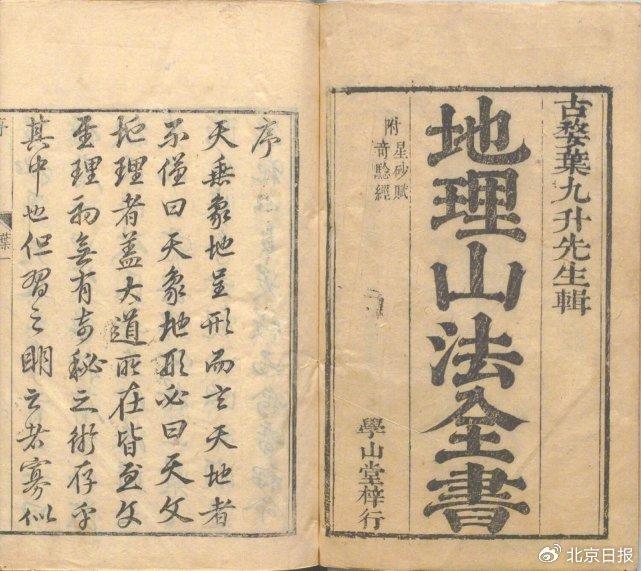 古婺葉九升先生輯
地理山法全書
附
星砂賦
奇驗經
學山堂梓行
序
天垂象地呈形而言天地者
不僅曰天象地形必曰天文
地理者蓋大道所在皆至文
至理初無有奇秘之術存乎
其中也但習之明之者寡似
葉一
北京日报